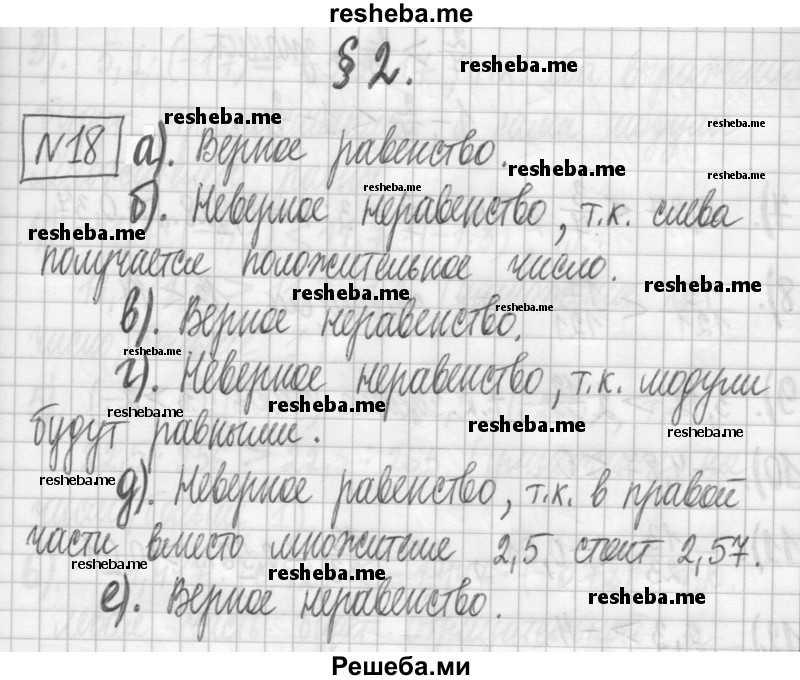 resheba.me
§ 2.
resheba.me
resheba.me
resheba.me
№18 а). Верное равенство.
resheba.me
resheba.me
resheba.me
б). Неверное неравенство, т.к. слева
resheba.me
получается положительное число.
resheba.me
resheba.me
resheba.me
в). Верное неравенство.
resheba.me
г). Неверное неравенство, т.к. модули
resheba.me
resheba.me
resheba.me
resheba.me
будут равными.
resheba.me
д). Неверное равенство, т.к. в правой
части вместо множителя 2,5 стоит 2,57.
resheba.me
resheba.me
resheba.me
е). Верное неравенство.
Решеба.ми